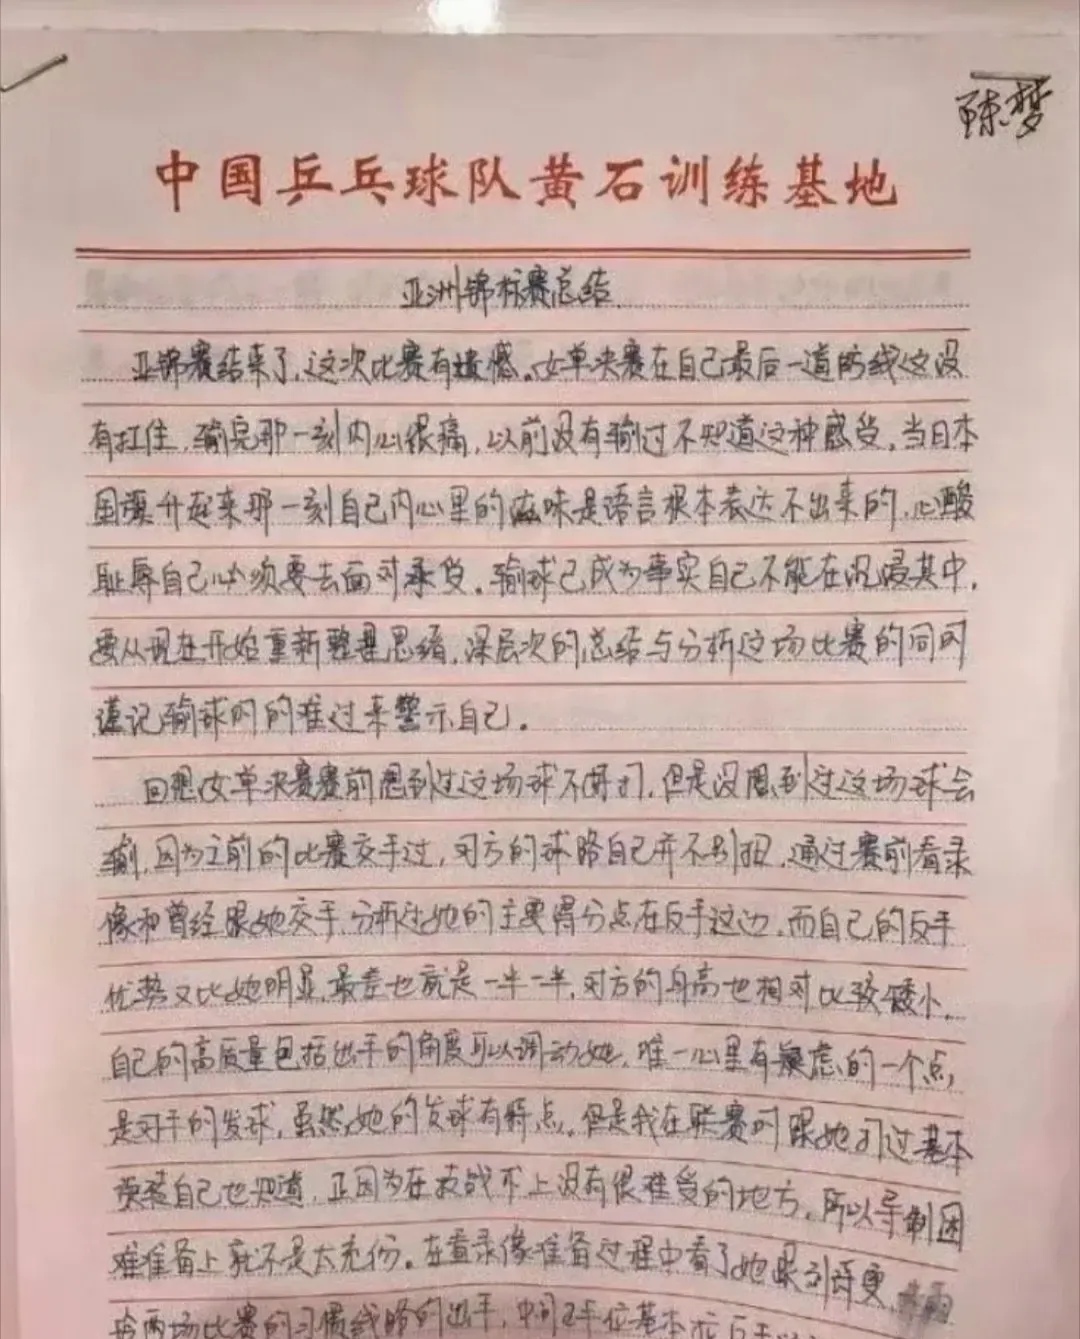 陈梦
中国乒乓球队黄石训练基地
亚洲锦标赛总结
亚锦赛结束了,这次比赛有遗憾。女单决赛在自己最后一道防线这没
有扛住,输完那一刻内心很痛,以前没有输过不知道这种感受。当日本
国旗升起来那一刻自己内心里的滋味是语言根本表达不出来的,心酸
耻辱自己必须要去面对承受。输球已成为事实自己不能在沉浸其中,
要从现在开始重新整理思绪,深层次的总结与分析这场比赛的同时
谨记输球时的难过来警示自己。
回想女单决赛赛前想到过这场球不好打,但是没想到过这场球会
输,因为之前的比赛交手过,对方的球路自己并不别扭,通过赛前看录
像和曾经跟她交手,分析过她的主要得分点在反手这边,而自己的反手
优势又比她明显,最差也就是一半一半,对方的身高也相对比较矮小,
自己的高质量包括出手的角度可以调动她,唯一心里有疑虑的一个点,
是对手的发球,虽然她的发球有特点。但是我在联赛时跟她打过基本
套路自己也知道,正因为在技战术上没有很难受的地方,所以导制困
难准备上就不是太充份。在看录像准备过程中看了她跟刘诗雯,
两场比赛的习惯线路的出手,中间正手位基本